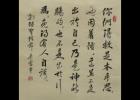 你們得救是本乎恩
也因著信這並不是
出於自己乃是神所
賜的也不是出於行
為免得有人自誇